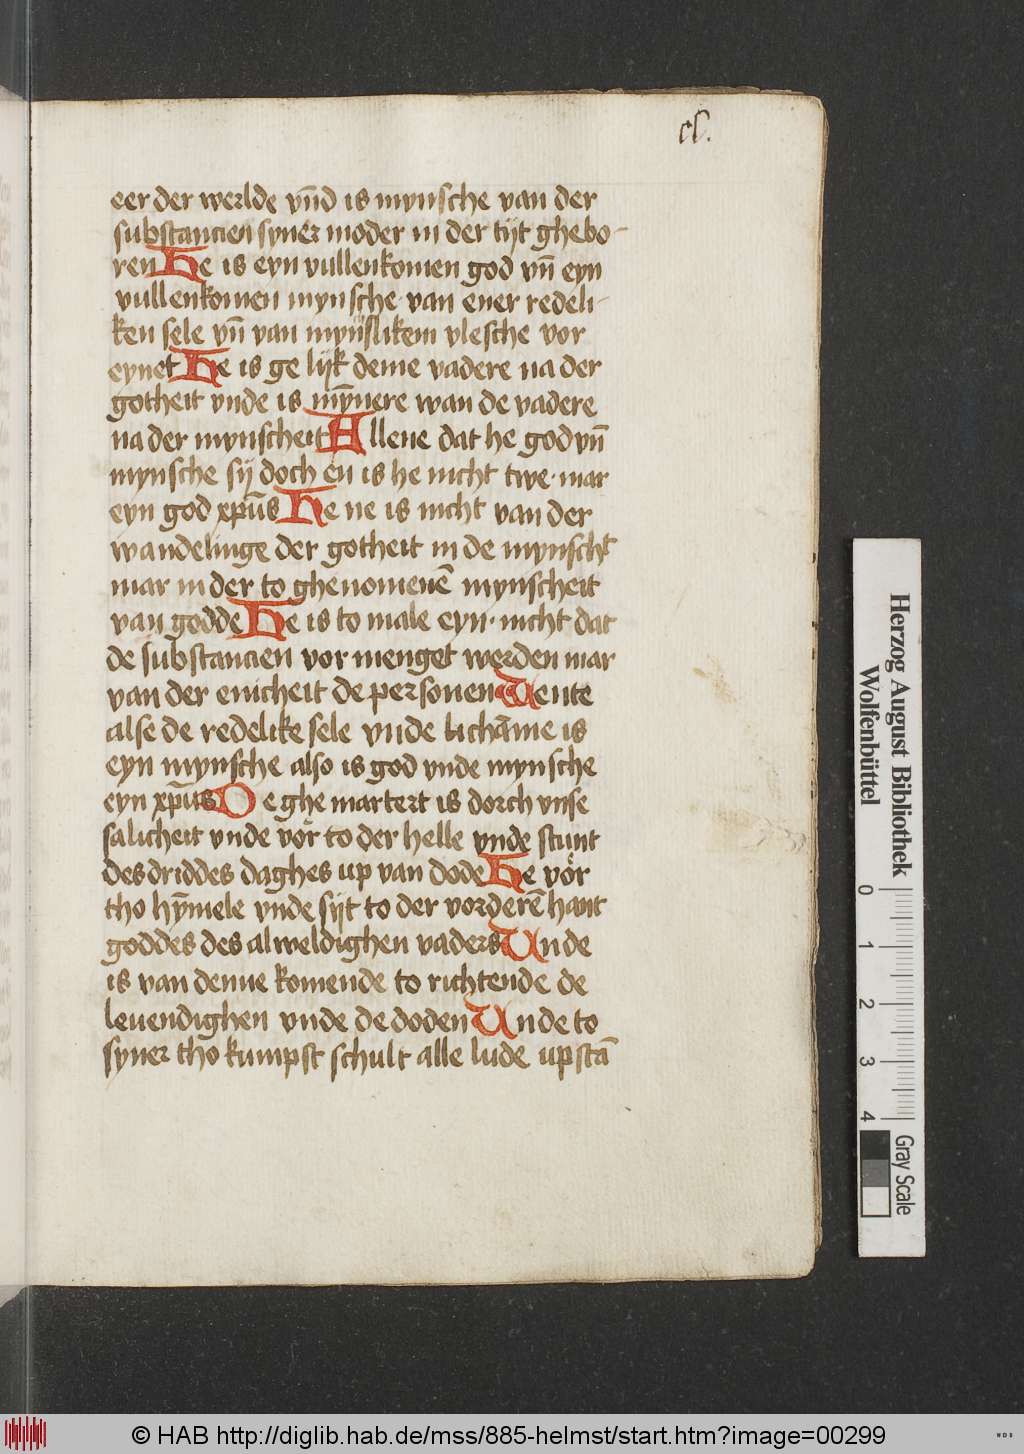 cl.
eer der werlde vn̄d is mynsche van der
substancien syner moder in der tijt ghebo-
ren He is eyn vullenkomen god vn̄ eyn
vullenkomen mynsche van ener redeli-
ken sele vn̄ van mynslikem vlesche vor
eynet He is ge lijk deme vadere na der
gotheit vnde is mȳnere wan de vadere
na der mynscheit Allene dat he god vn̄
mynsche sij doch en is he nicht twe · mar
eyn god xp̄us He ne is nicht van der
wandelinge der gotheit in de mynscht
mar in der to ghenomenē mynscheit
van godde He is to male eyn · nicht dat
de substancien vor menget werden mar
van der enicheit de personen Wente
alse de redelike sele vnde lichāme is
eyn mynsche also is god vnde mynsche
eyn xp̄us De ghe martert is dorch vnse
salicheit vnde vor to der helle vnde stunt
des driddes daghes up van dode He vor
tho hȳmele vnde sijt to der vorderē hant
goddes des alweldighen vaders Unde
is van denne komende to richtende de
leuendighen vnde de doden Unde to
syner tho kumpst schult alle lude upstā
Herzog August Bibliothek
Wolfenbüttel
0 1 2 3 4
Gray Scale
© HAB http://diglib.hab.de/mss/885-helmst/start.htm?image=00299